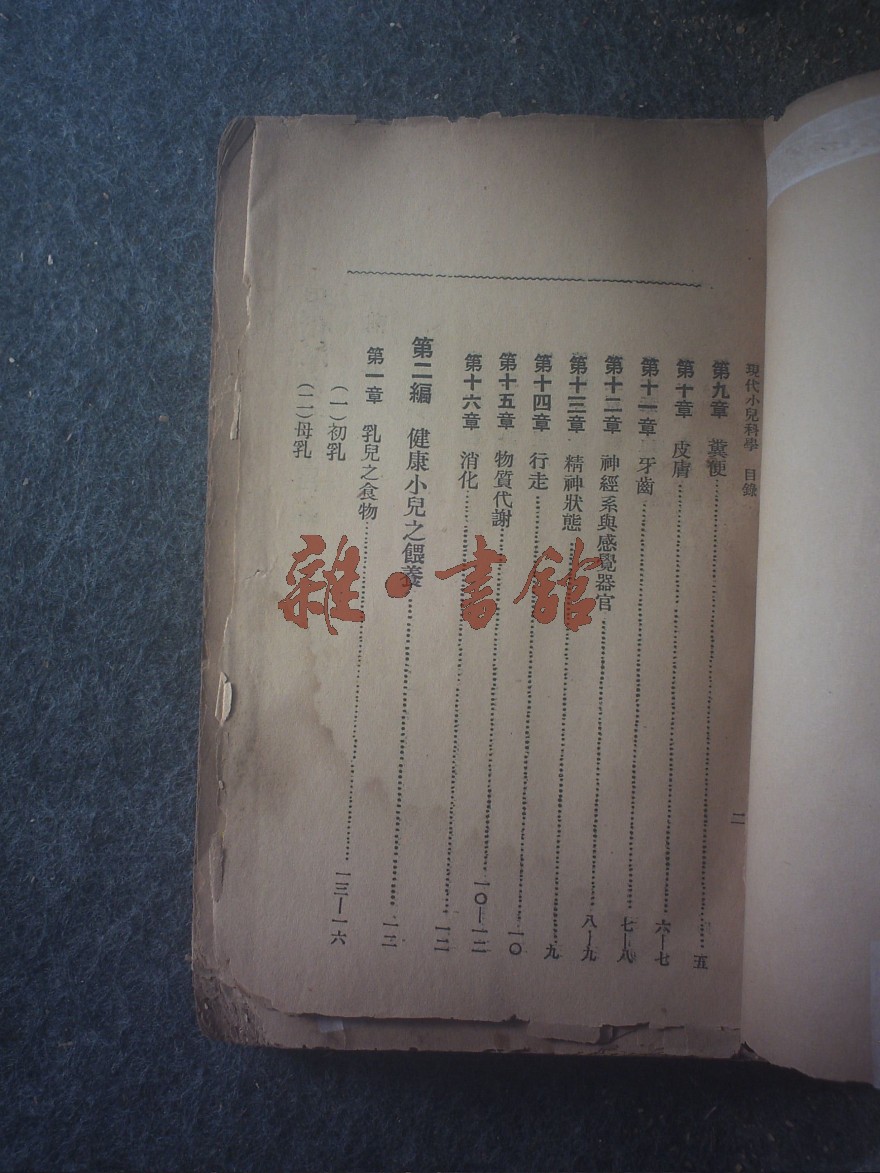 現代小兒科學 目錄 二
第九章 糞便……五
第十章 皮膚……六—七
第十一章 牙齒……七—八
第十二章 神經系與感覺器官……八—九
第十三章 精神狀態……九
第十四章 行走……一〇
第十五章 物質代謝……一〇—一二
第十六章 消化……一二
第二編 健康小兒之餵養……一二
第一章 乳兒之食物……一三—一六
(一)初乳
(二)母乳
雜·書館